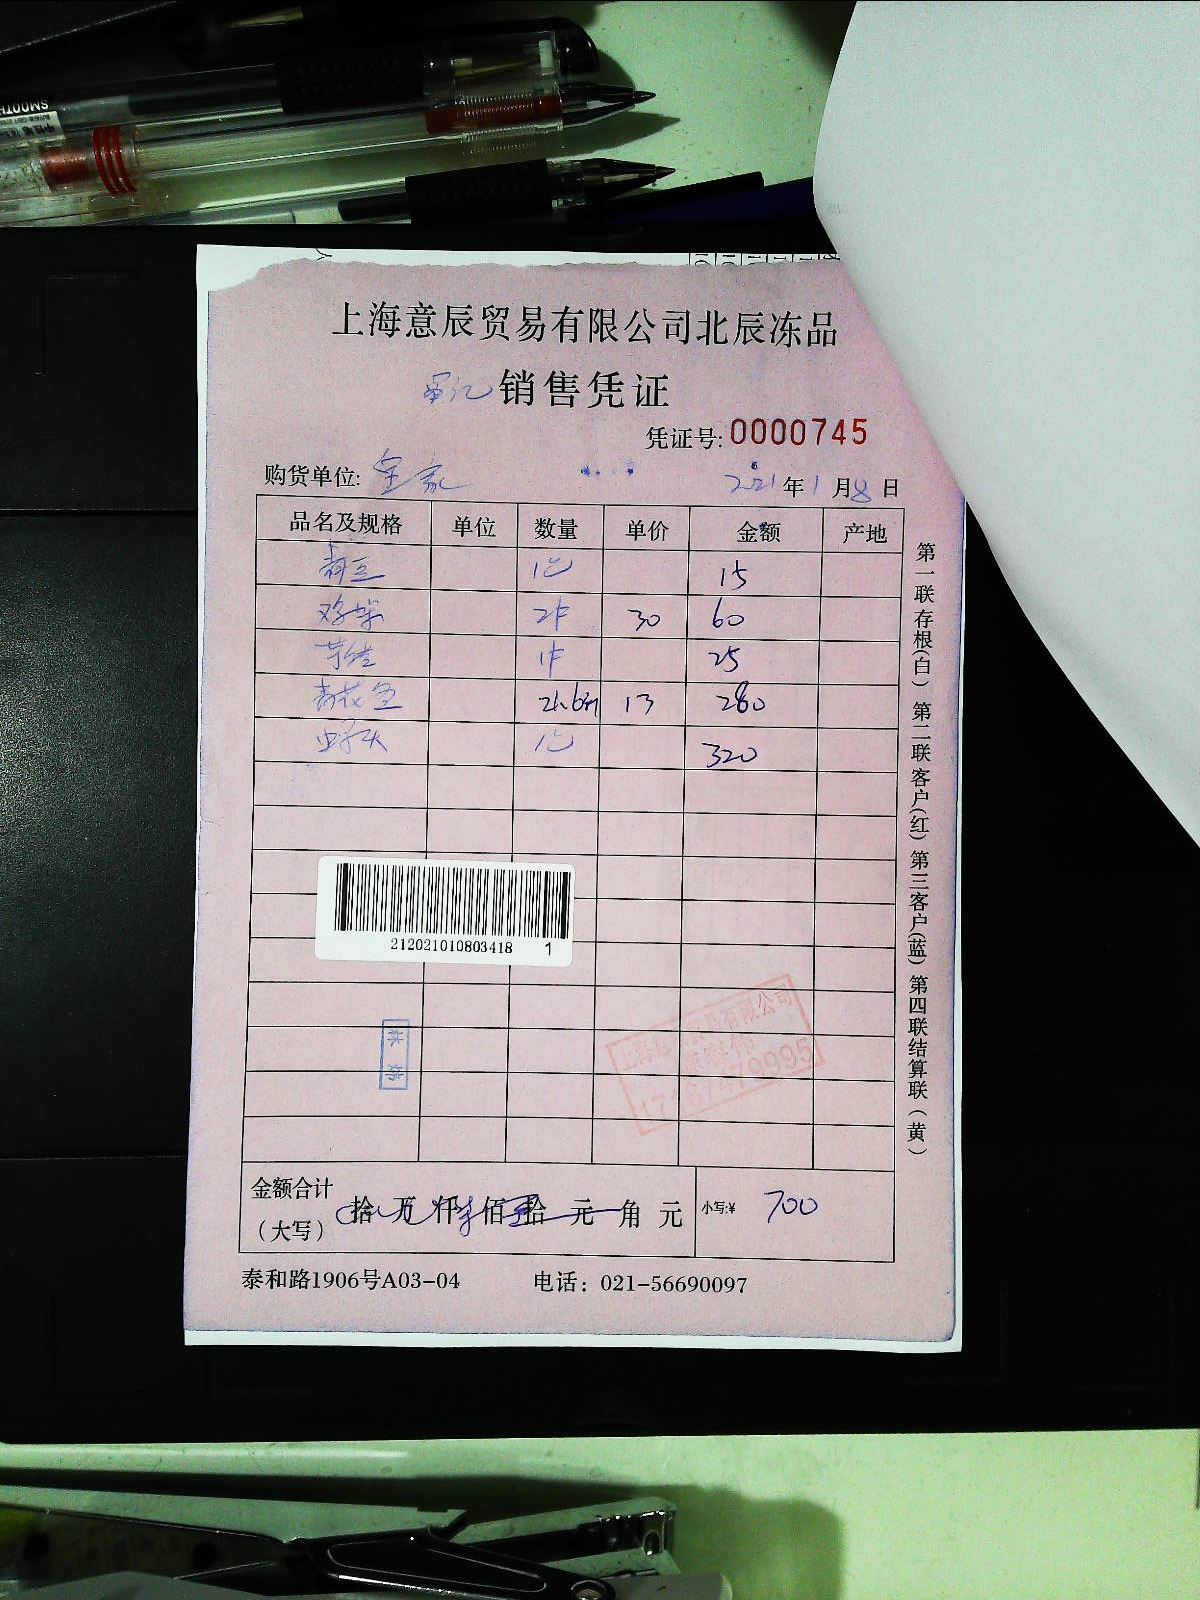 SMOOTH
上海意辰贸易有限公司北辰冻品
销售凭证
凭证号:0000745
购货单位: 年1月8日
品名及规格 单位 数量 单价 金额 产地
青豆 1包 15
2件 30 60
1件 25
青花鱼 21.6斤 13 280
虾头 1包 320
212021010803418 1
有限公司
金额合计
(大写) 拾 万 仟 佰 拾 元 角 元 小写:¥ 700
泰和路1906号A03-04 电话：021-56690097
第一联存根(白) 第二联客户(红) 第三客户(蓝) 第四联结算联(黄)